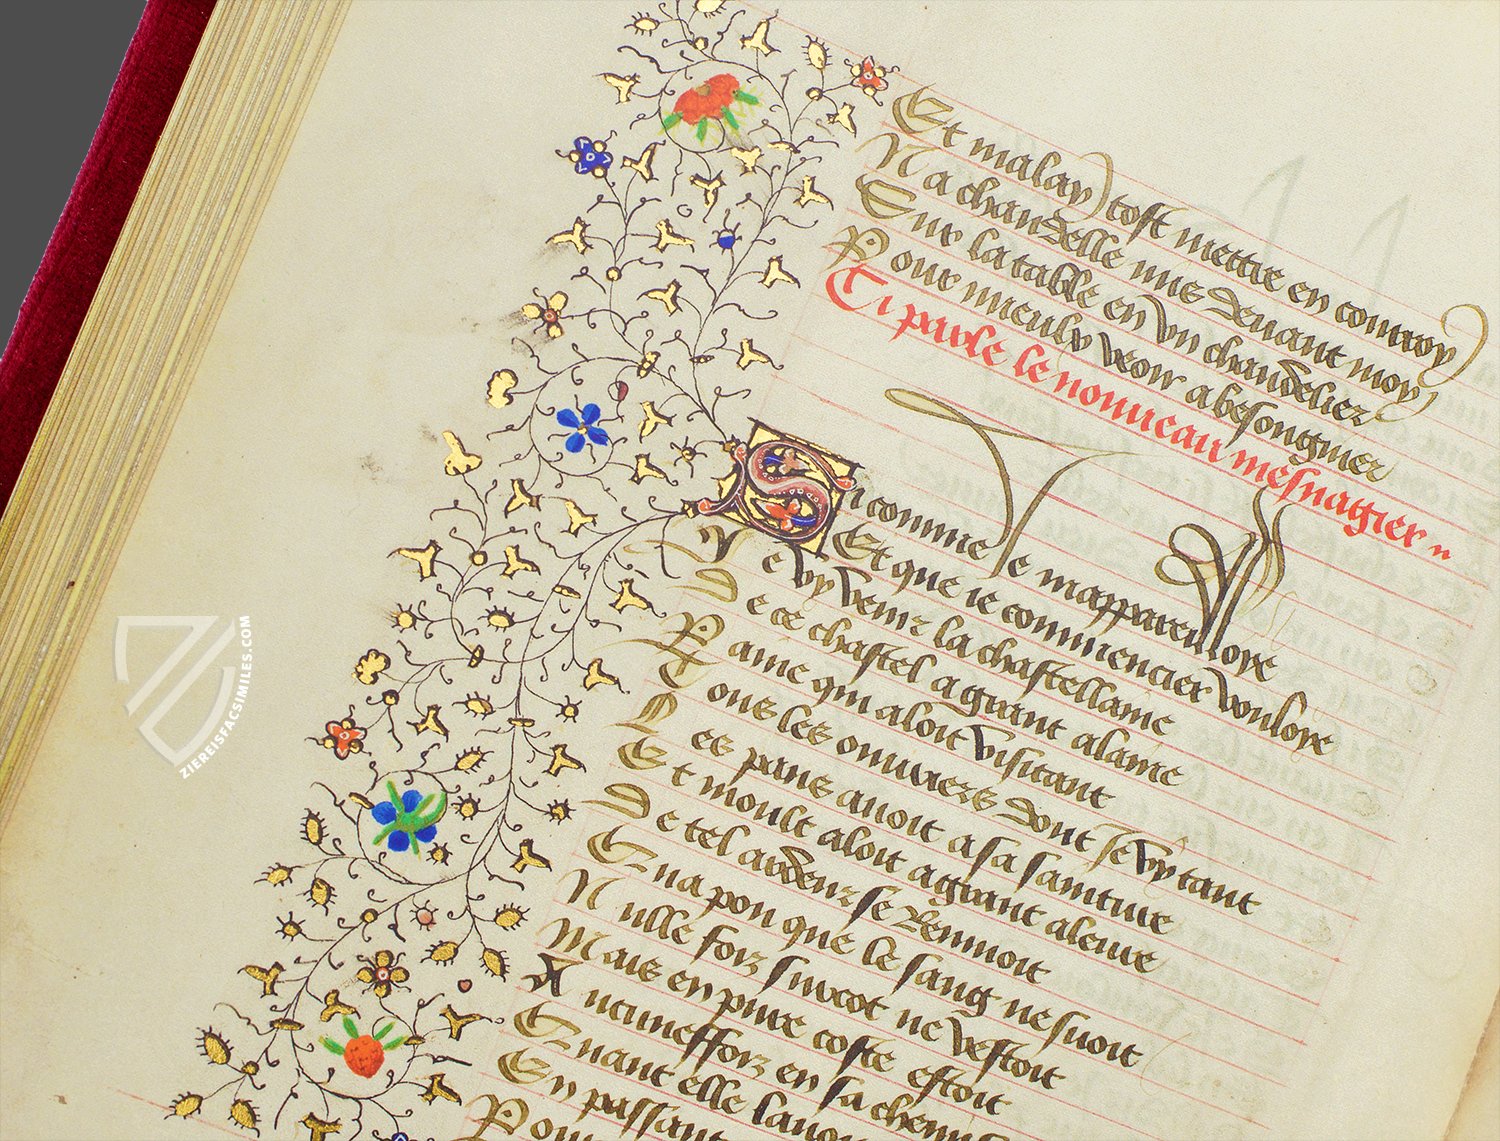 Et malay tost mettre en conroy
Na chandelle mis deuant moy
Sur la table en vn chandelier
Pour mieulx veoir a besongnier
Ci parle le nouueau mesnagier
Si comme Je mappareilloye
Et que ie commencier vouloye
Je vy venir la chastellaine
De ce chastel a grant alaine
Dame qui aloit visitant
Tous les ouuriers dont se vy tant
Les pans auoit a sa sainture
Et moult aloit a grant aleure
De tel ardeur se demenoit
Qua pou que le sang ne suoit
Nulle forz surcot ne vestoit
Mais en pure coste estoit
Aucuneffoiz en sa
Quant elle
En passant
Pour
ZIEREISFACSIMILES.COM